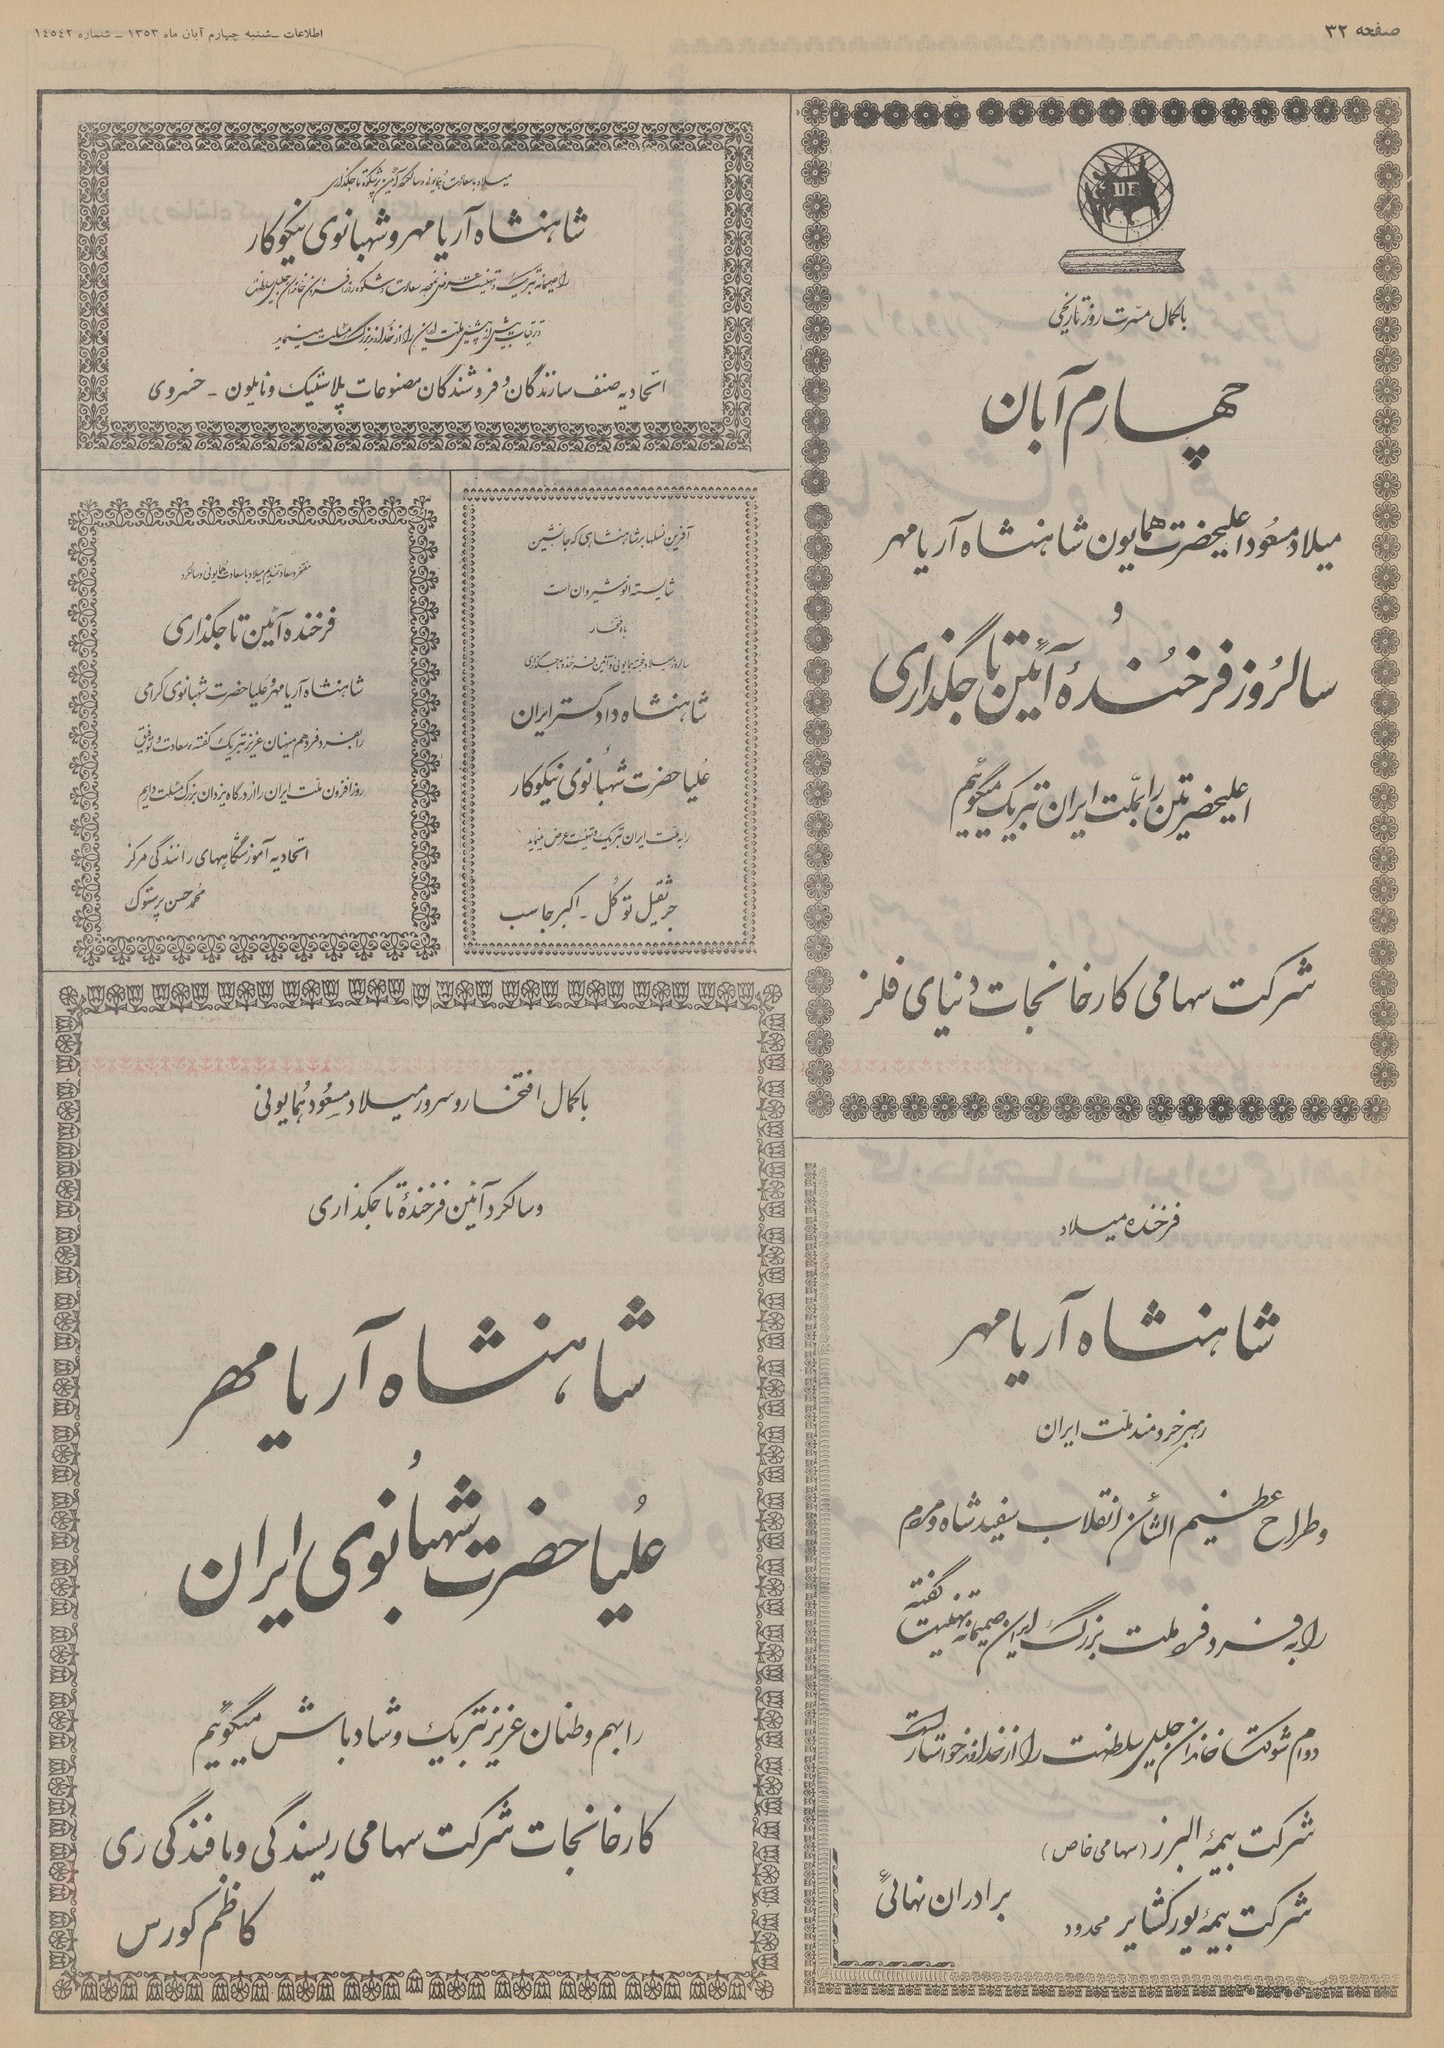 صفحه ۳۲
اطلاعات ـ شنبه چهارم آبان ماه ۱۳۵۳ ـ شماره ۱۴۵۴۲
DF
باکمال مسرت روز تاریخی
چهارم آبان
میلاد مسعود اعلیحضرت همایون شاهنشاه آریامهر
و
سالروز فرخنده آئین تاجگذاری
اعلیحضرتین را بملت ایران تبریک میگوییم
شرکت سهامی کارخانجات دنیای فلز
میلاد با سعادت همایونی و سالگرد آئین پرشکوه تاجگذاری
شاهنشاه آریامهر و شهبانوی نیکوکار
را صمیمانه تبریک و تهنیت عرض نموده سعادت و شکوه روزافزون خاندان جلیل سلطنت
و ترقیات بیش از پیش ملت ایران را از خداوند بزرگ مسئلت مینماید
اتحادیه صنف سازندگان و فروشندگان مصنوعات پلاستیک و نایلون ـ خسروی
آفرین نسلها بر شاهنشاهی که جانشین
شایسته انوشیروان است
با افتخار
سالروز میلاد خجسته همایونی و آئین فرخنده تاجگذاری
شاهنشاه دادگستر ایران
علیاحضرت شهبانوی نیکوکار
را به ملت ایران تبریک و تهنیت عرض مینماید
جرثقیل توکل ـ اکبر جاسب
مفتخر و سعادتمندیم میلاد با سعادت همایونی و سالگرد
فرخنده آئین تاجگذاری
شاهنشاه آریامهر و علیاحضرت شهبانوی گرامی
را بفرد فرد هم میهنان عزیز تبریک گفته، سعادت و توفیق
روزافزون ملت ایران را از درگاه یزدان بزرگ مسئلت داریم
اتحادیه آموزشگاههای رانندگی مرکز
محمد حسن پرستوک
باکمال افتخار و سرور میلاد مسعود همایونی
و سالگرد آئین فرخندهٔ تاجگذاری
شاهنشاه آریامهر
و
علیاحضرت شهبانوی ایران
را بهم وطنان عزیز تبریک و شادباش میگوییم
کارخانجات شرکت سهامی ریسندگی و بافندگی ری
کاظم کورس
فرخنده میلاد
شاهنشاه آریامهر
رهبر خردمند ملت ایران
و طراح عظیم الشأن انقلاب سفید شاه و مردم
را به فرد فرد ملت بزرگ ایران صمیمانه تهنیت گفته
دوام شوکت خاندان جلیل سلطنت را از خداوند خواستار است
شرکت بیمهٔ البرز (سهامی خاص)
شرکت بیمهٔ یورکشایر محدود
برادران نهائی